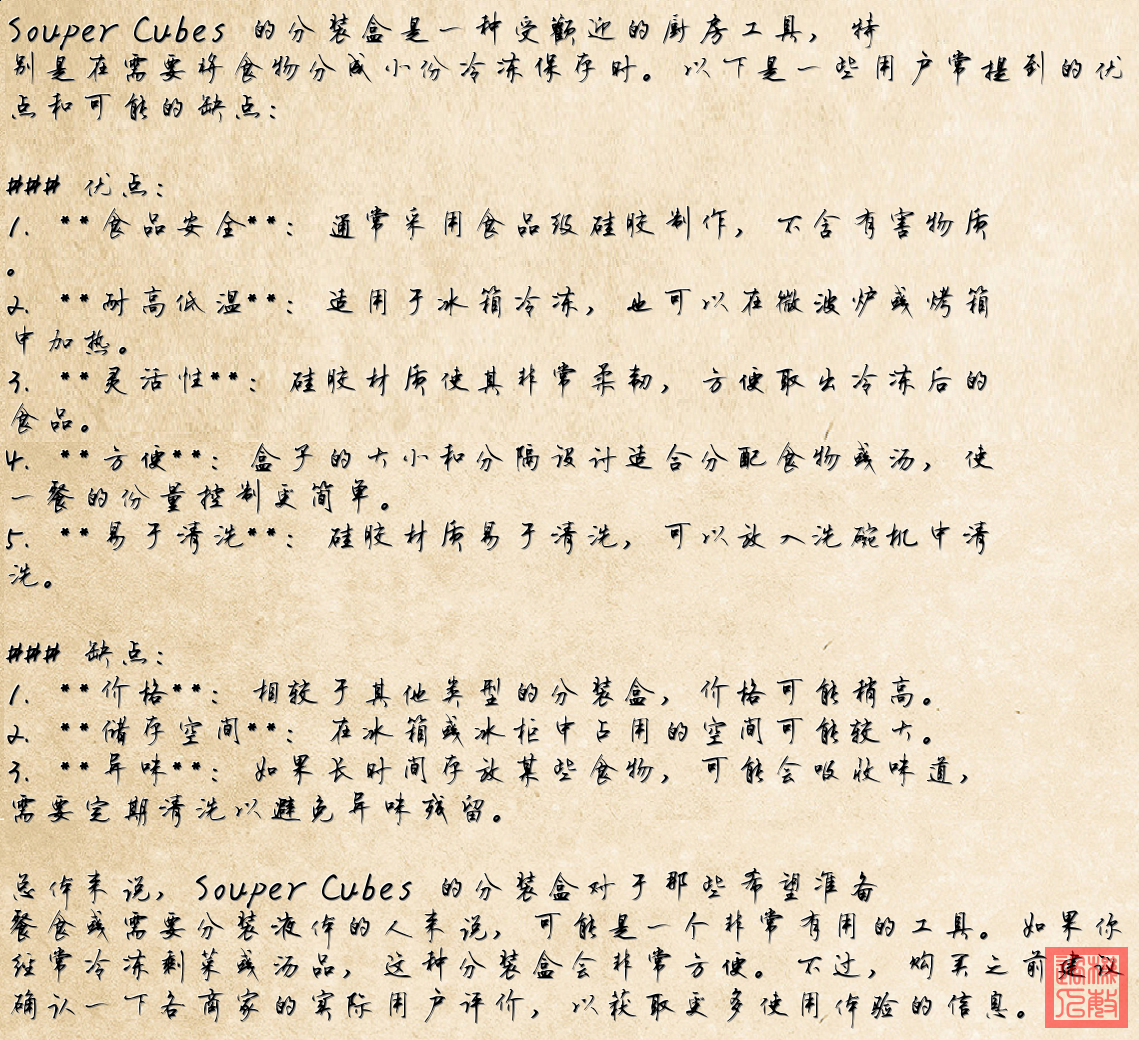 Souper Cubes 的分装盒是一种受歡迎的厨房工具，特
别是在需要将食物分成小份冷冻保存时。以下是一些用户常提到的优
点和可能的缺点：
### 优点：
1. **食品安全**：通常采用食品级硅胶制作，不含有害物质
。
2. **耐高低温**：适用于冰箱冷冻，也可以在微波炉或烤箱
中加热。
3. **灵活性**：硅胶材质使其非常柔韧，方便取出冷冻后的
食品。
4. **方便**：盒子的大小和分隔设计适合分配食物或汤，使
一餐的份量控制更简单。
5. **易于清洗**：硅胶材质易于清洗，可以放入洗碗机中清
洗。
### 缺点：
1. **价格**：相较于其他类型的分装盒，价格可能稍高。
2. **储存空间**：在冰箱或冰柜中占用的空间可能较大。
3. **异味**：如果长时间存放某些食物，可能会吸收味道，
需要定期清洗以避免异味残留。
总体来说，Souper Cubes 的分装盒对于那些希望准备
餐食或需要分装液体的人来说，可能是一个非常有用的工具。如果你
经常冷冻剩菜或汤品，这种分装盒会非常方便。不过，购买之前建议
确认一下各商家的实际用户评价，以获取更多使用体验的信息。